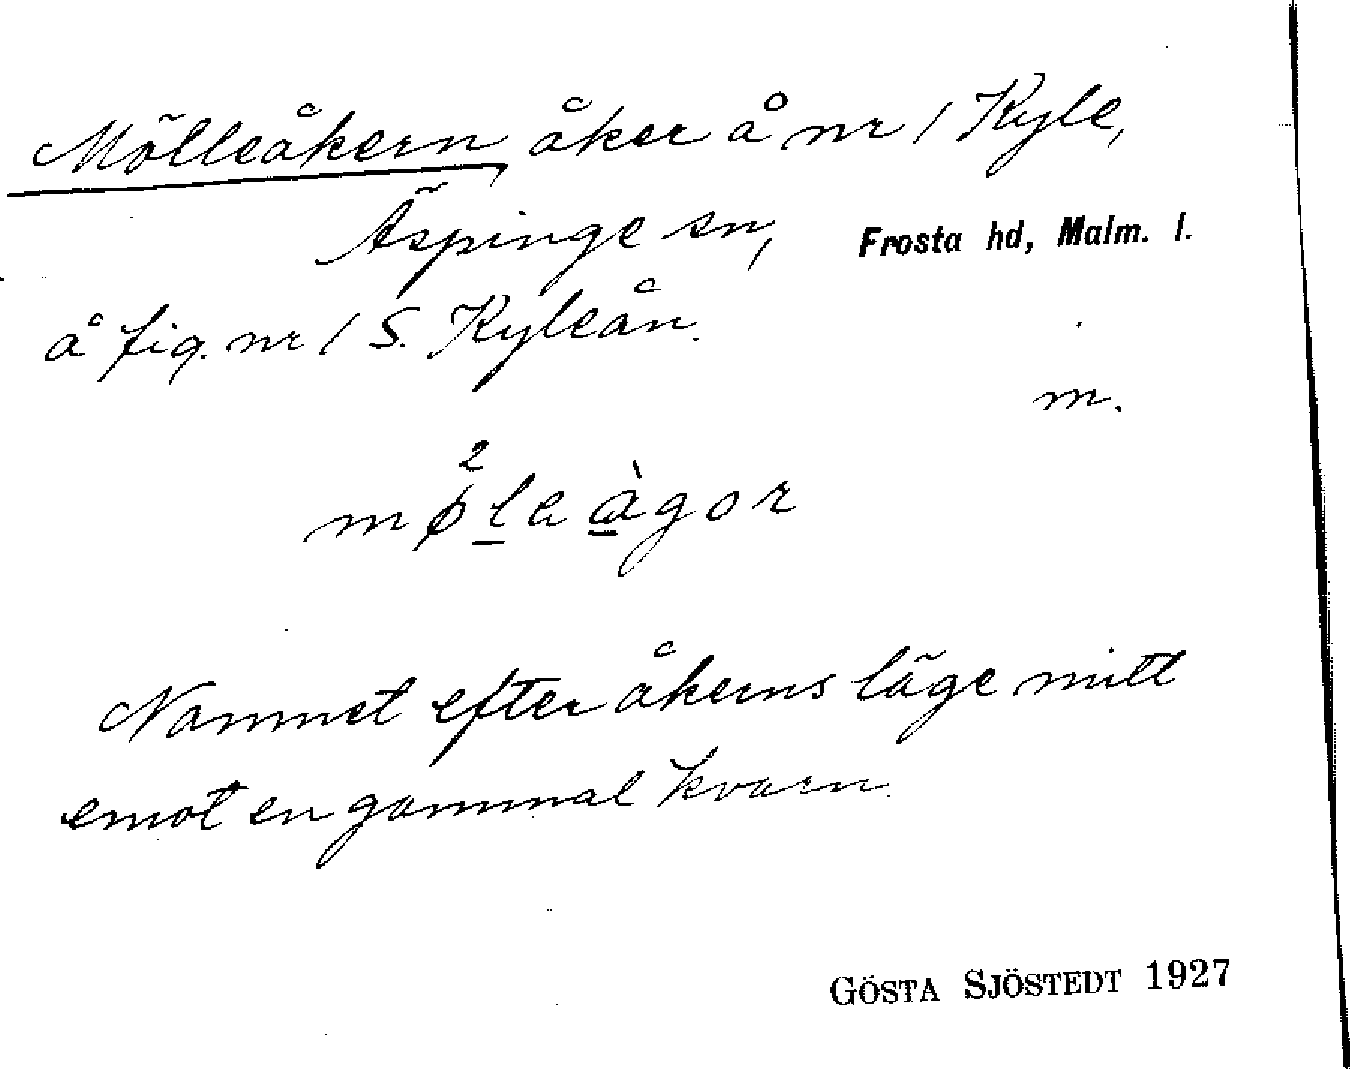 Mölleåkern, åker å nr 1 Kyle,
Äspinge sn, Frosta hd, Malm. l.
å fig. nr 1 S. Kyleån.
m.
mø²la àgor
Namnet efter åkerns läge mitt
emot en gammal kvarn.
GÖSTA SJÖSTEDT 1927